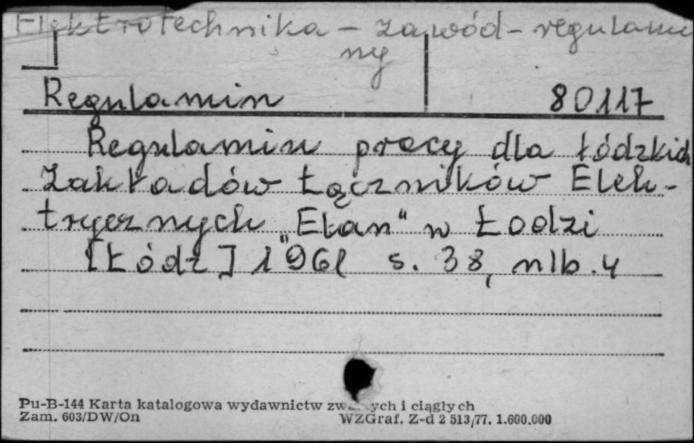 Elektrotechnika – zawód – regulami
ny
Regulamin 80117
Regulamin pracy dla Łódzkich
Zakładów Łączników Elek-
trycznych „Ełan" w Łodzi
[Łódź] 1961 s. 38, nlb. 4
Pu-B-144 Karta katalogowa wydawnictw i ciągłych
Zam. 603/DW/On WZGraf. Z-d 2 513/77. 1.600.000